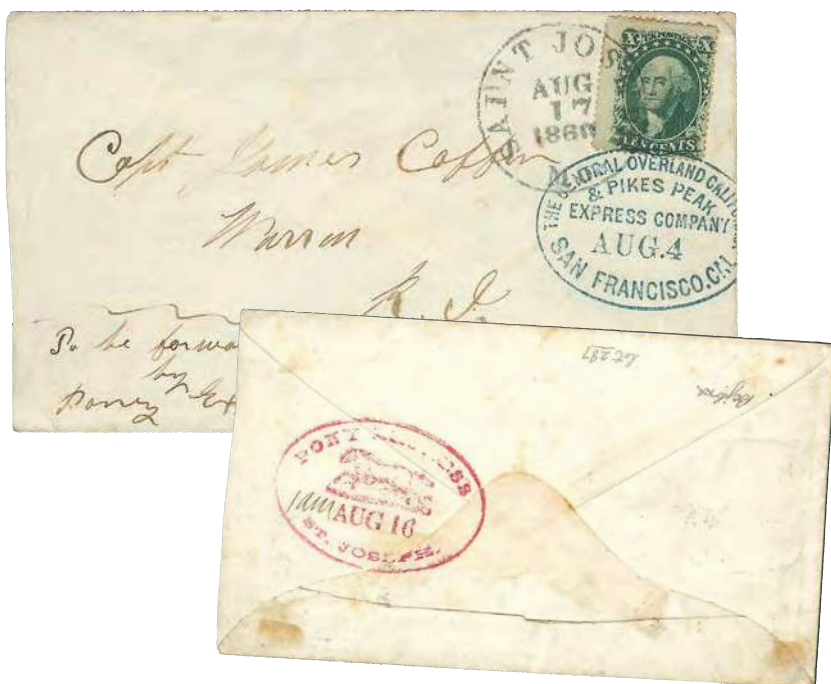 SAINT JOS
AUG
17
1860
M
X U.S. POSTAGE X
TEN CENTS
THE CENTRAL OVERLAND CALIFORNIA
& PIKES PEAK
EXPRESS COMPANY
AUG.4
SAN FRANCISCO.CAL
Capt James Coffin
Warren
R. I.
To be forwa
by
Poney Ex
PONY EXPRESS
1 am AUG 16
ST. JOSEPH.